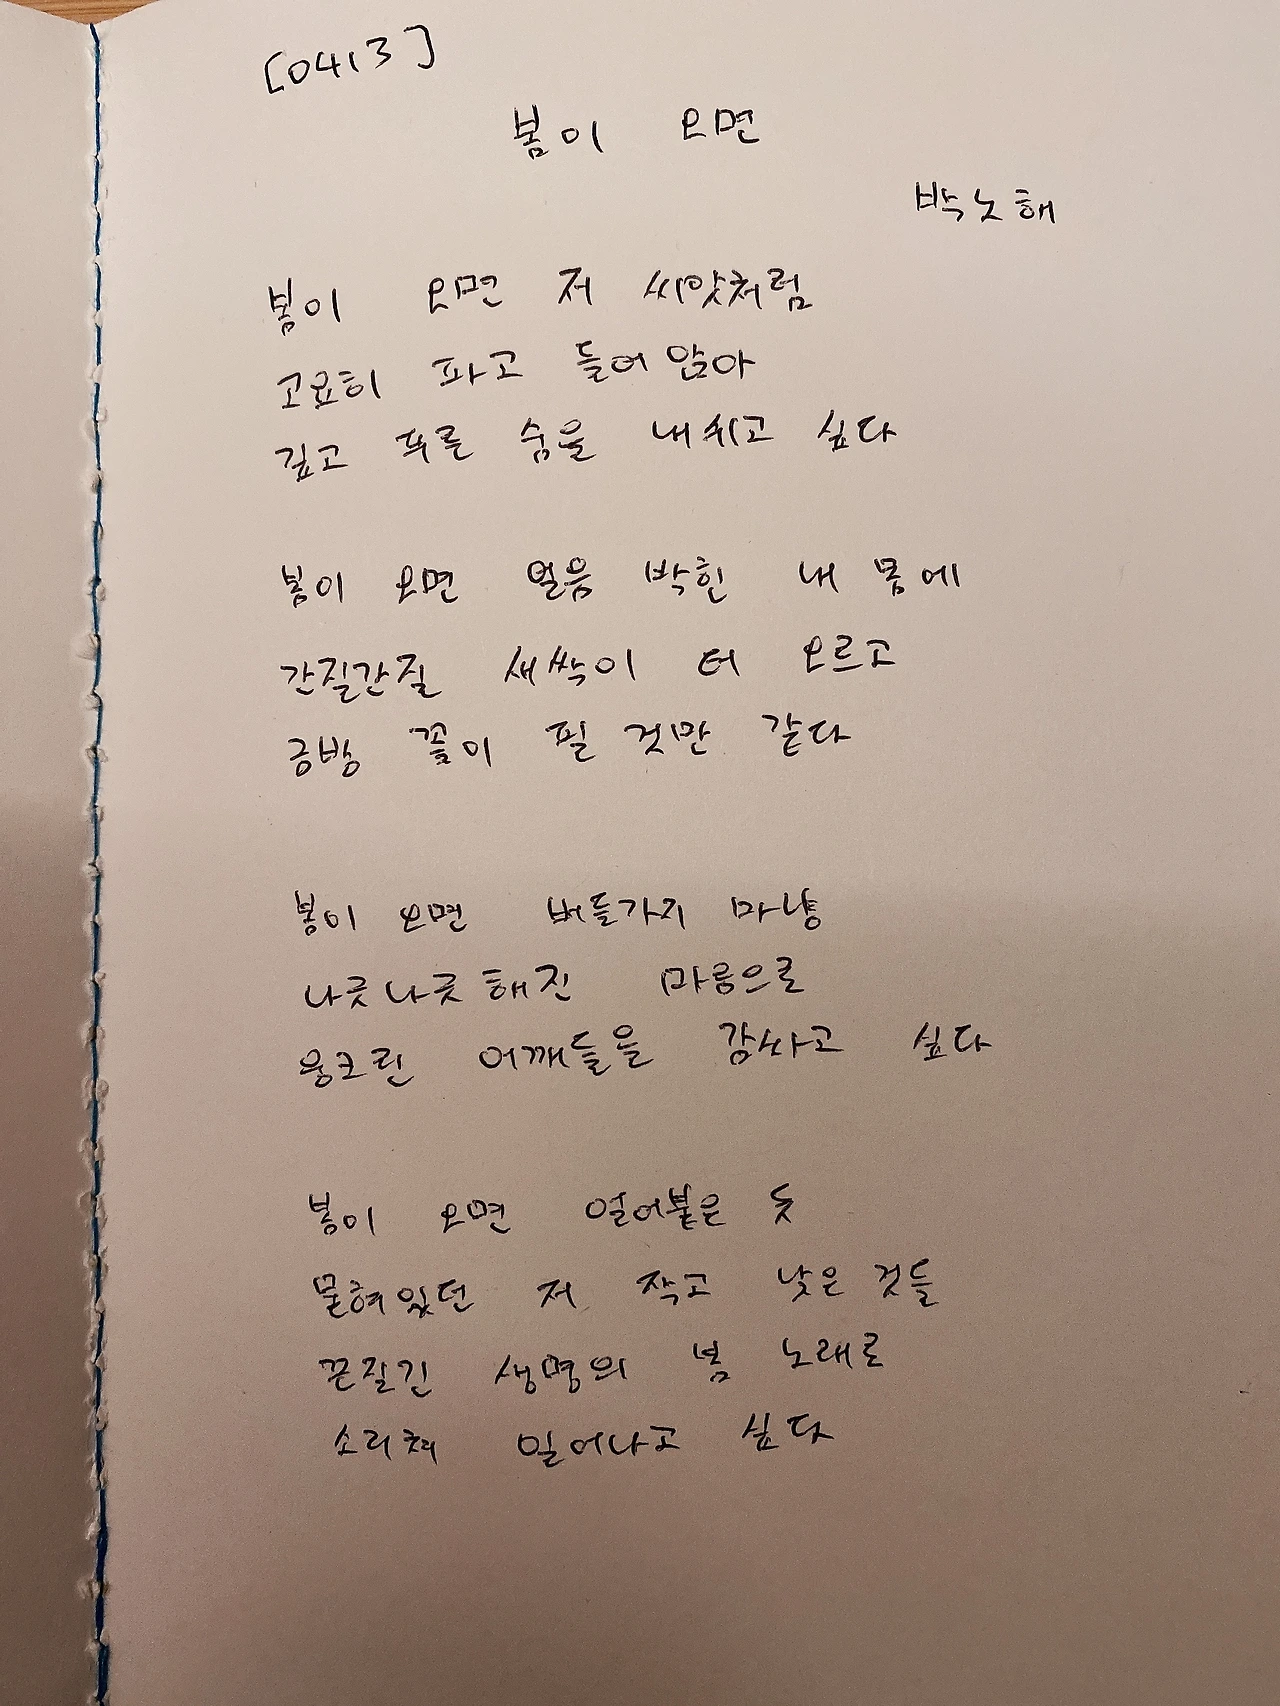 [0413]
봄이 오면
박노해
봄이 오면 저 씨앗처럼
고요히 파고 들어 앉아
깊고 푸른 숨을 내쉬고 싶다
봄이 오면 얼음 박힌 내 몸에
간질간질 새싹이 터 오르고
금방 꽃이 필 것만 같다
봄이 오면 버들가지 마냥
나긋나긋해진 마음으로
웅크린 어깨들을 감싸고 싶다
봄이 오면 얼어붙은 듯
묻혀있던 저 작고 낮은 것들
끈질긴 생명의 봄 노래로
소리쳐 일어나고 싶다